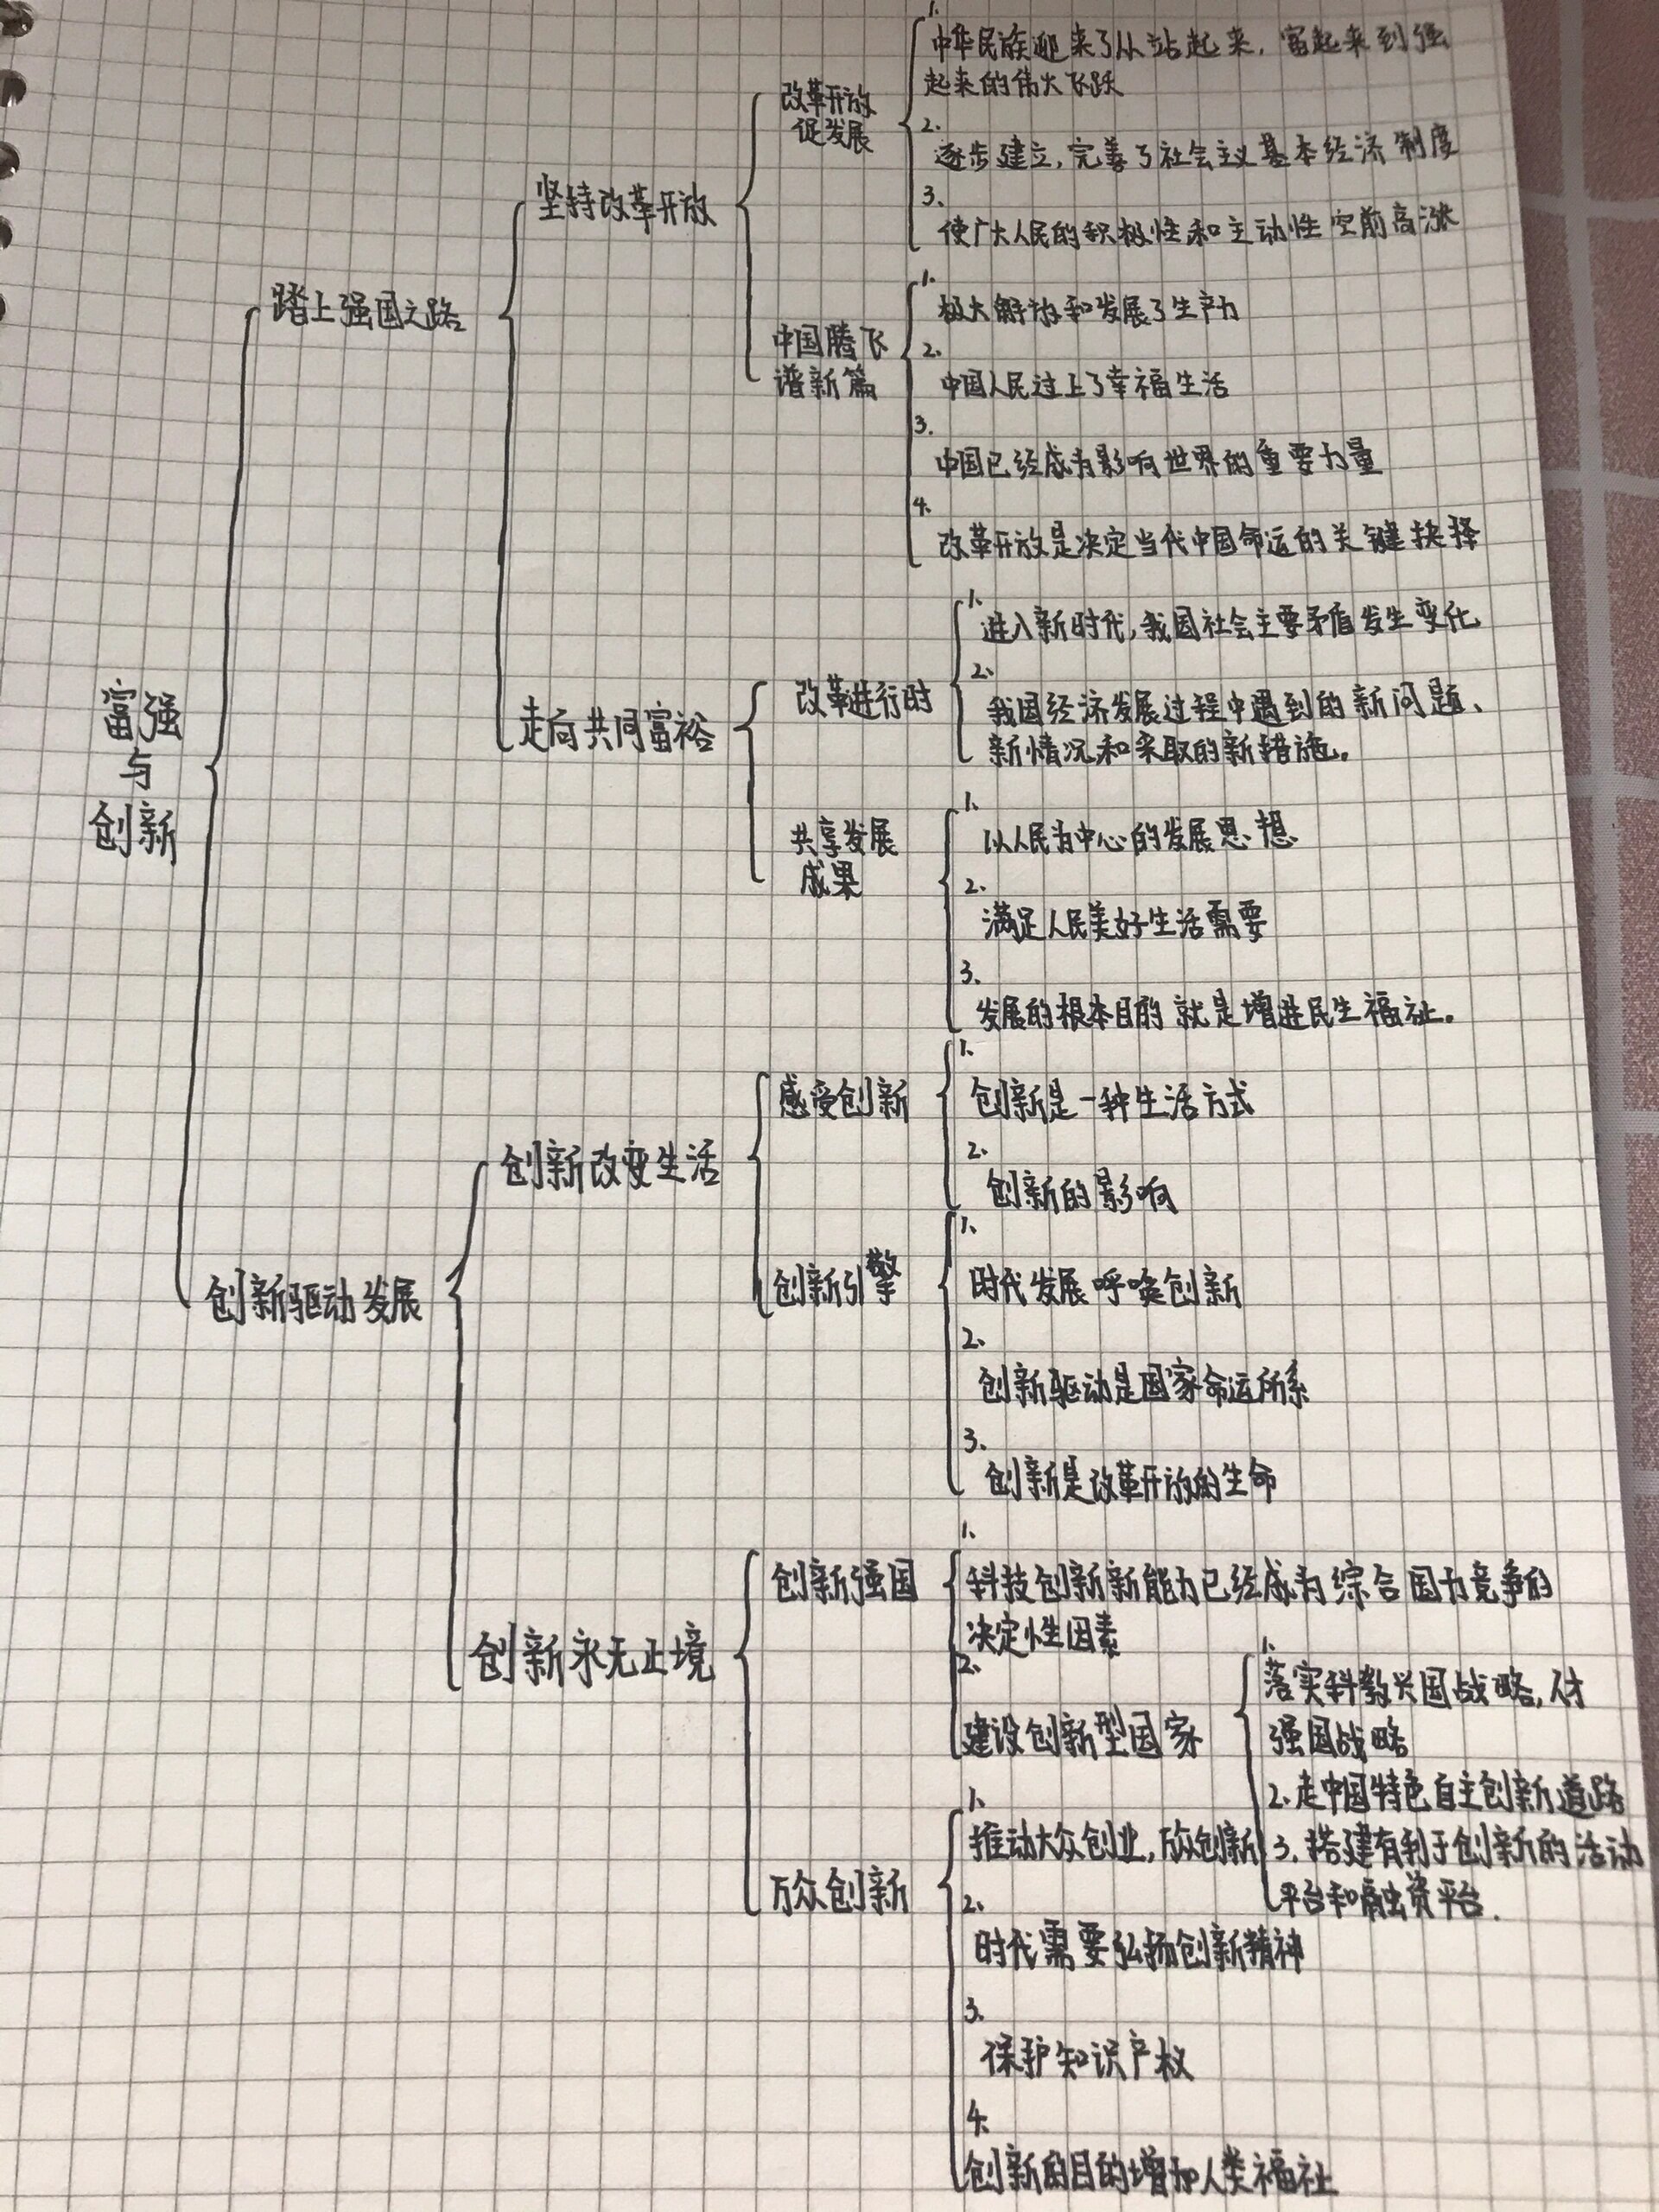 富强
与
创新
踏上强国之路
坚持改革开放
改革开放
促发展
1.
中华民族迎来了从站起来,富起来到强
起来的伟大飞跃
2.
逐步建立,完善了社会主义基本经济制度
3.
使广大人民的积极性和主动性空前高涨
中国腾飞
谱新篇
1.
极大解放和发展了生产力
2.
中国人民过上了幸福生活
3.
中国已经成为影响世界的重要力量
4.
改革开放是决定当代中国命运的关键抉择
走向共同富裕
改革进行时
1.
进入新时代,我国社会主要矛盾发生变化
2.
我国经济发展过程中遇到的新问题、
新情况和采取的新措施。
共享发展
成果
1.
以人民为中心的发展思想
2.
满足人民美好生活需要
3.
发展的根本目的就是增进民生福祉。
创新驱动发展
创新改变生活
感受创新
1.
创新是一种生活方式
2.
创新的影响
创新引擎
1.
时代发展呼唤创新
2.
创新驱动是国家命运所系
3.
创新是改革开放的生命
创新永无止境
创新强国
1.
科技创新新能力已经成为综合国力竞争的
决定性因素
2.
建设创新型国家
1.
落实科教兴国战略,人才
强国战略
2.走中国特色自主创新道路
3.搭建有利于创新的活动
平台和融资平台.
万众创新
1.
推动大众创业,万众创新
2.
时代需要弘扬创新精神
3.
保护知识产权
4.
创新的目的增加人类福祉